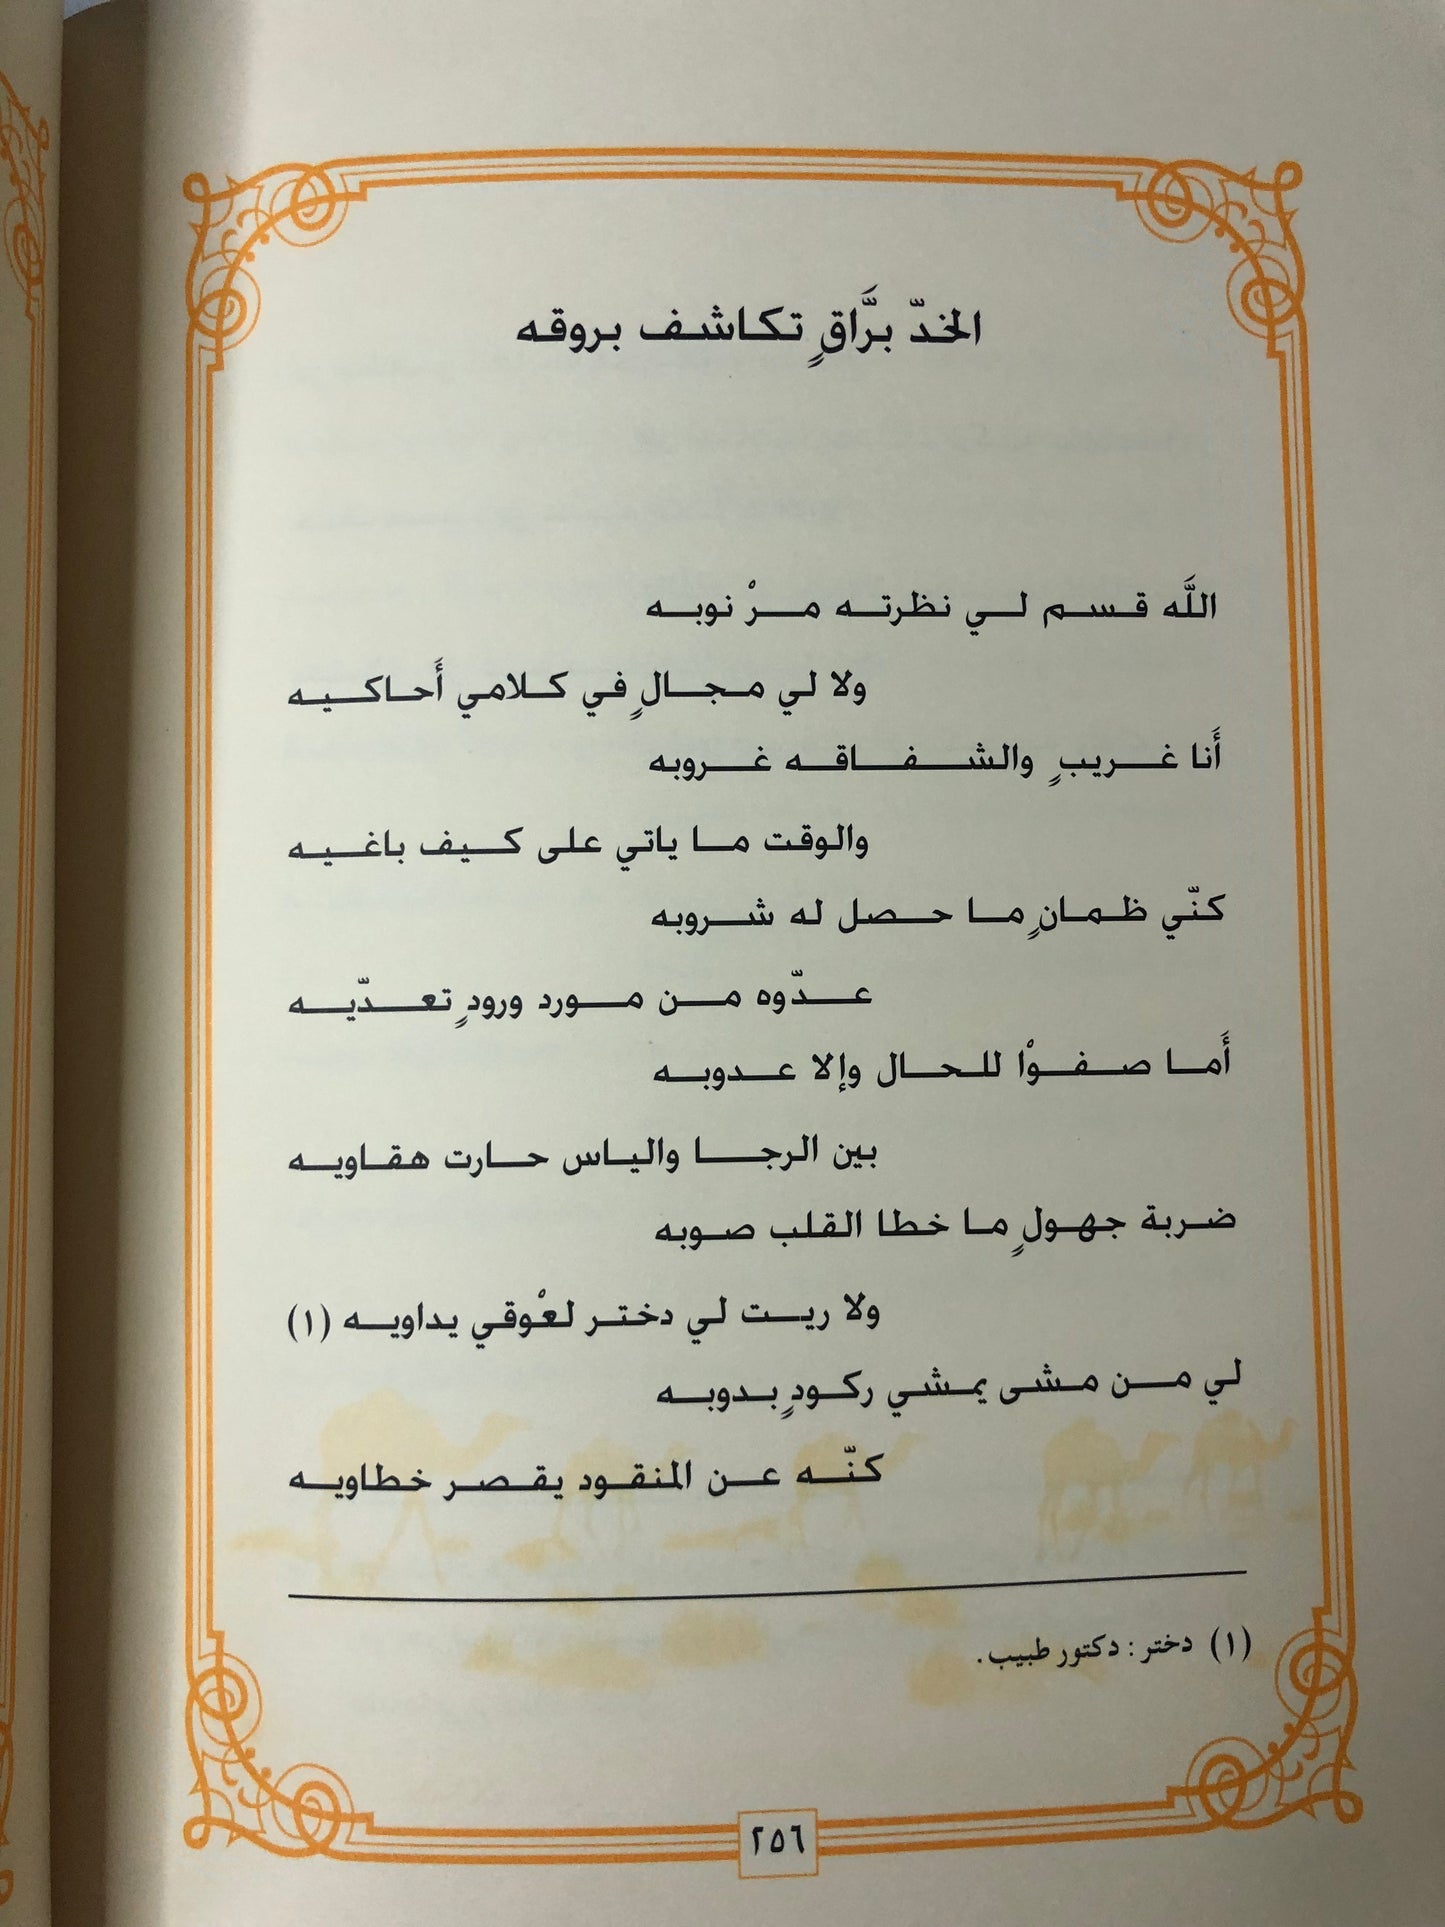 الخدّ برَّاقٍ تكاشف بروقه
اللَّه قسم لي نظرته مرْ نوبه
ولا لي مجالٍ في كلامي أَحاكيه
أَنا غريبٍ والشفاقه غروبه
والوقت ما ياتي على كيف باغيه
كنّي ظمانٍ ما حصل له شروبه
عدّوه من مورد ورودٍ تعدّيه
أَما صفوْا للحال وإلا عدوبه
بين الرجا والياس حارت هقاويه
ضربة جهولٍ ما خطا القلب صوبه
ولا ريت لي دختر لعْوقي يداويه (١)
لي من مشى يمشي ركودٍ بدوبه
كنّه عن المنقود يقصر خطاويه
(١) دختر : دكتور طبيب .
٢٥٦